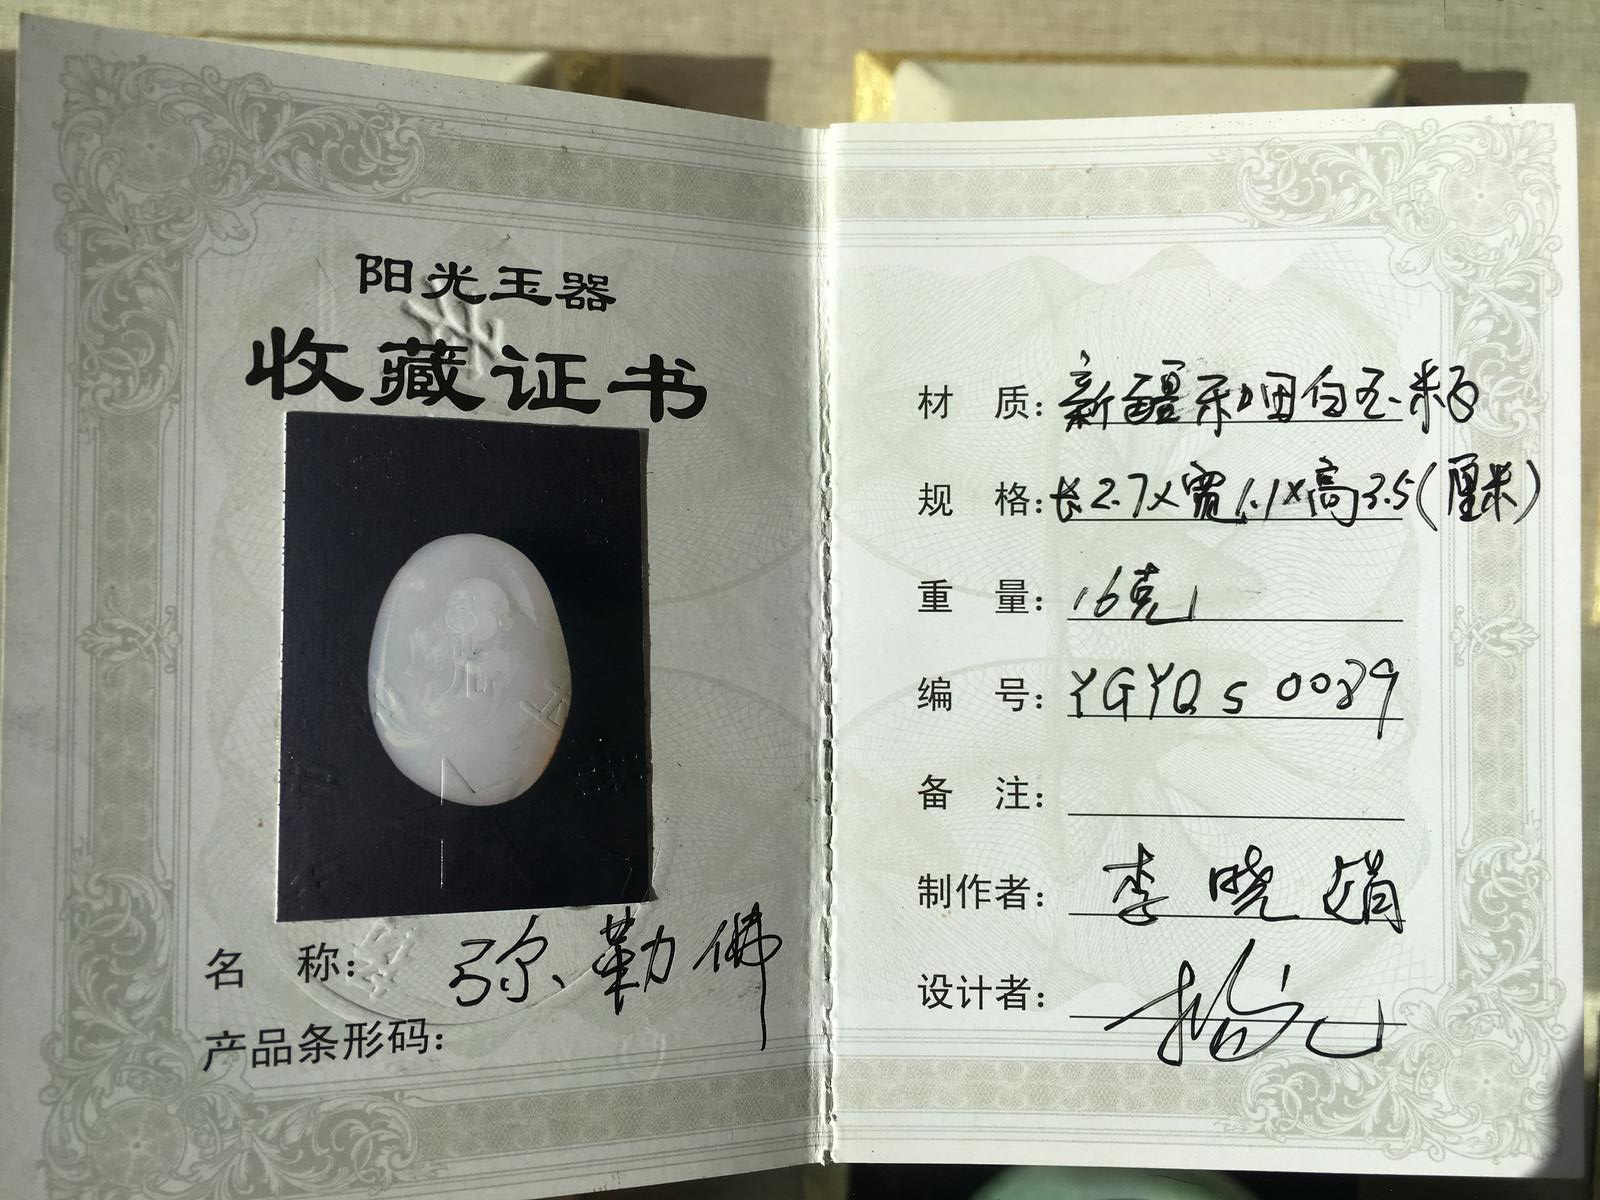 阳光玉器
收藏证书
名 称: 弥勒佛
产品条形码:
材 质: 新疆和田白玉籽
规 格: 长2.7×宽1.1×高3.5(厘米)
重 量: 16克
编 号: YGYQS 0089
备 注:
制作者: 李晓娟
设计者: